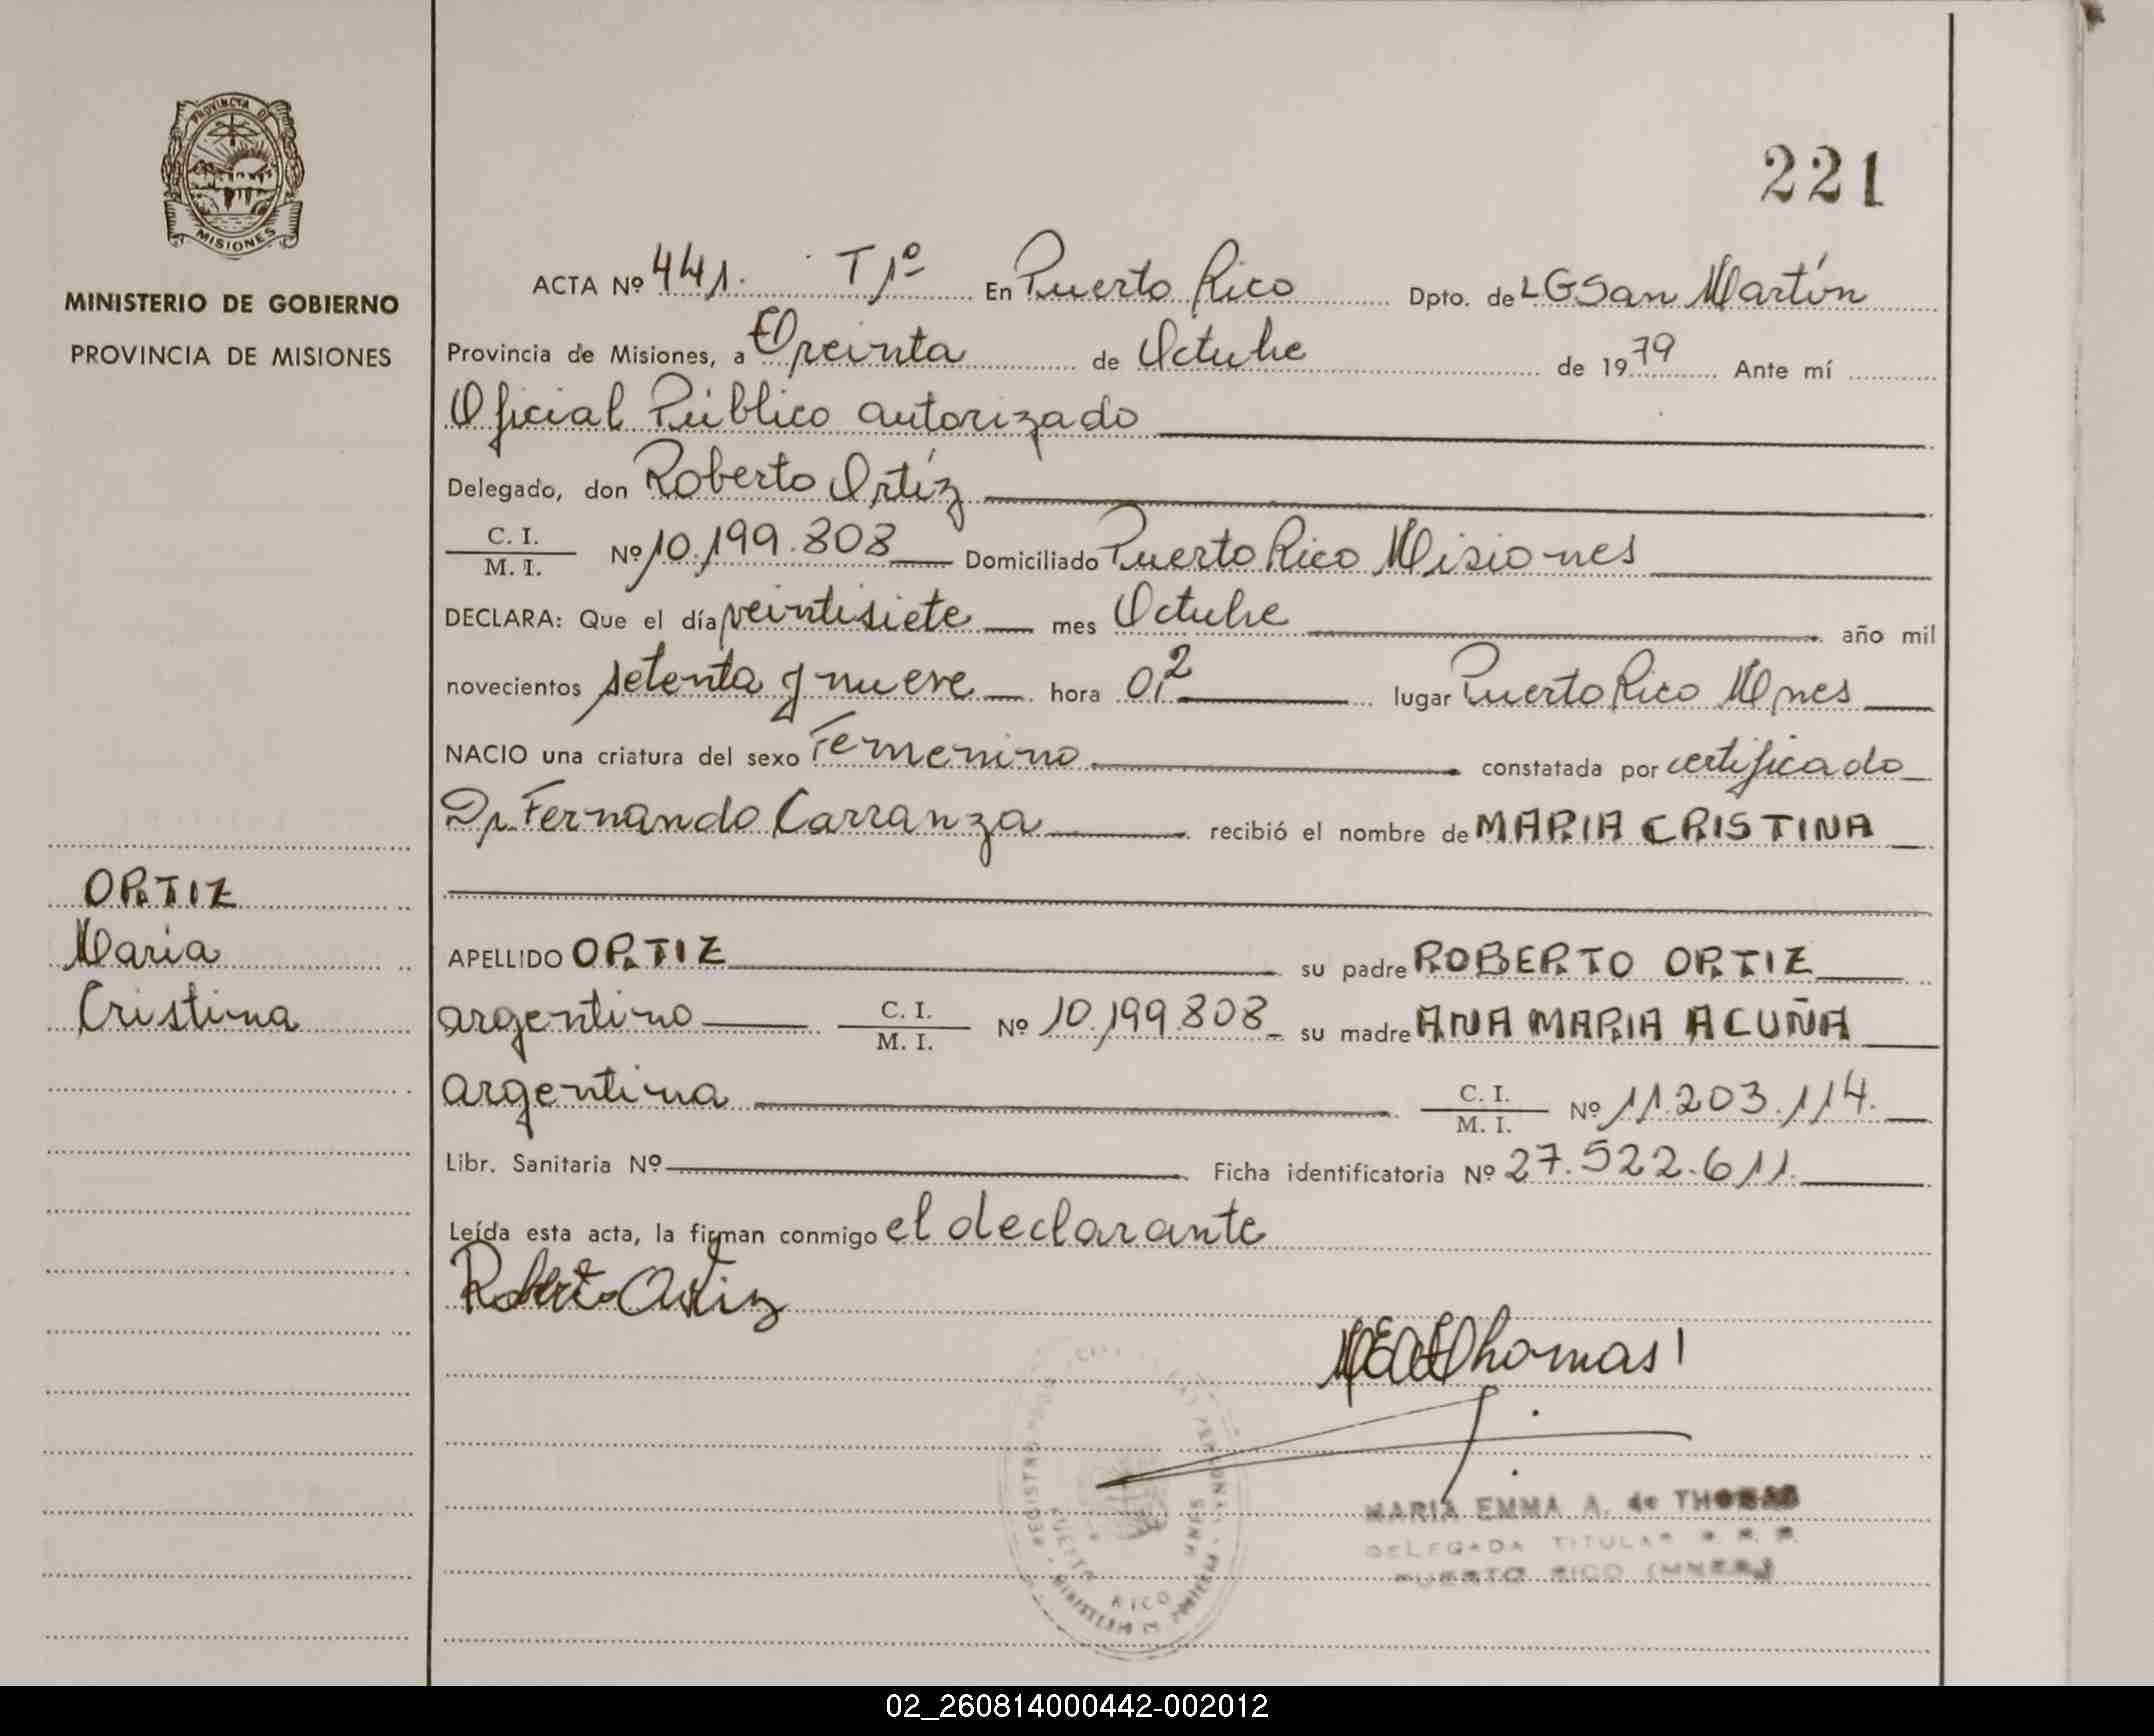 PROVINCIA DE
MISIONES
MINISTERIO DE GOBIERNO
PROVINCIA DE MISIONES
ORTIZ
Maria
Cristina
221
ACTA Nº 441. T 1º En Puerto Rico Dpto. de LGSan Martín
Provincia de Misiones, a Treinta de Octubre de 1979 Ante mí
Oficial Público autorizado
Delegado, don Roberto Ortíz
C. I. / M. I. Nº 10.199.808 Domiciliado Puerto Rico Misiones
DECLARA: Que el día veintisiete mes Octubre año mil
novecientos setenta y nueve hora 02 lugar Puerto Rico Mnes
NACIO una criatura del sexo Femenino constatada por certificado
Dr. Fernando Carranza recibió el nombre de MARIA CRISTINA
APELLIDO ORTIZ su padre ROBERTO ORTIZ
argentino C. I. / M. I. Nº 10.199.808 su madre ANA MARIA ACUÑA
argentina C. I. / M. I. Nº 11.203.114.
Libr. Sanitaria Nº Ficha identificatoria Nº 27.522.611.
Leída esta acta, la firman conmigo el declarante
Roberto Ortiz
Thomas
MARIA EMMA A. de THOMAS
DELEGADA TITULAR
PUERTO RICO (MNES)
PUERTO RICO
02_260814000442-002012